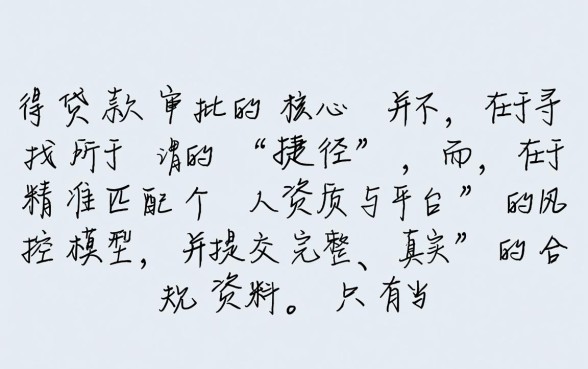 得贷款审批的核心 并不，在于寻
找所于 谓的“捷径”，而，在于
精准匹配个 人资质与平台”的风
控模型，并提交完整、真实”的合
规资料。只有当